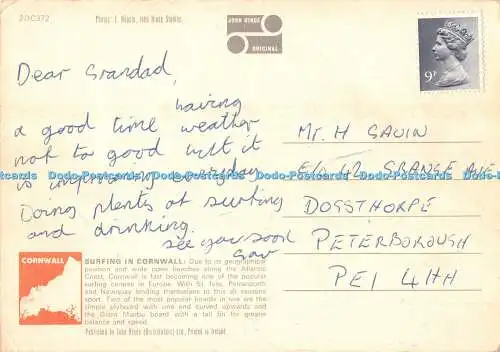 2DC372
JOHN HINDE
ORIGINAL
9P
Dear Grandad,
having
a good time weather
not to good but it
is improving everyday
Doing plenty of surfing
and drinking.
see you soon
Gav
Mr. H GAVIN
42 GRANGE AVE
DOGSTHORPE
PETERBOROUGH
PE1 4HH
Dodo-Postcards Dodo-Postcards Dodo-Postcards Dodo-Postcards Dodo-Postcards
CORNWALL
SURFING IN CORNWALL: Due to its geographical
position and wide open beaches along the Atlantic
Coast, Cornwall is fast becoming one of the popular
surfing centres in Europe. With St. Ives, Perranporth
and Newquay lending themselves to this all seasons
sport. Two of the most popular boards in use are the
simple plyboard with one end curved upwards and
the Giant Malibu board with a tail fin for greater
balance and speed.
Published by John Hinde (Distributors) Ltd., Printed in Ireland.